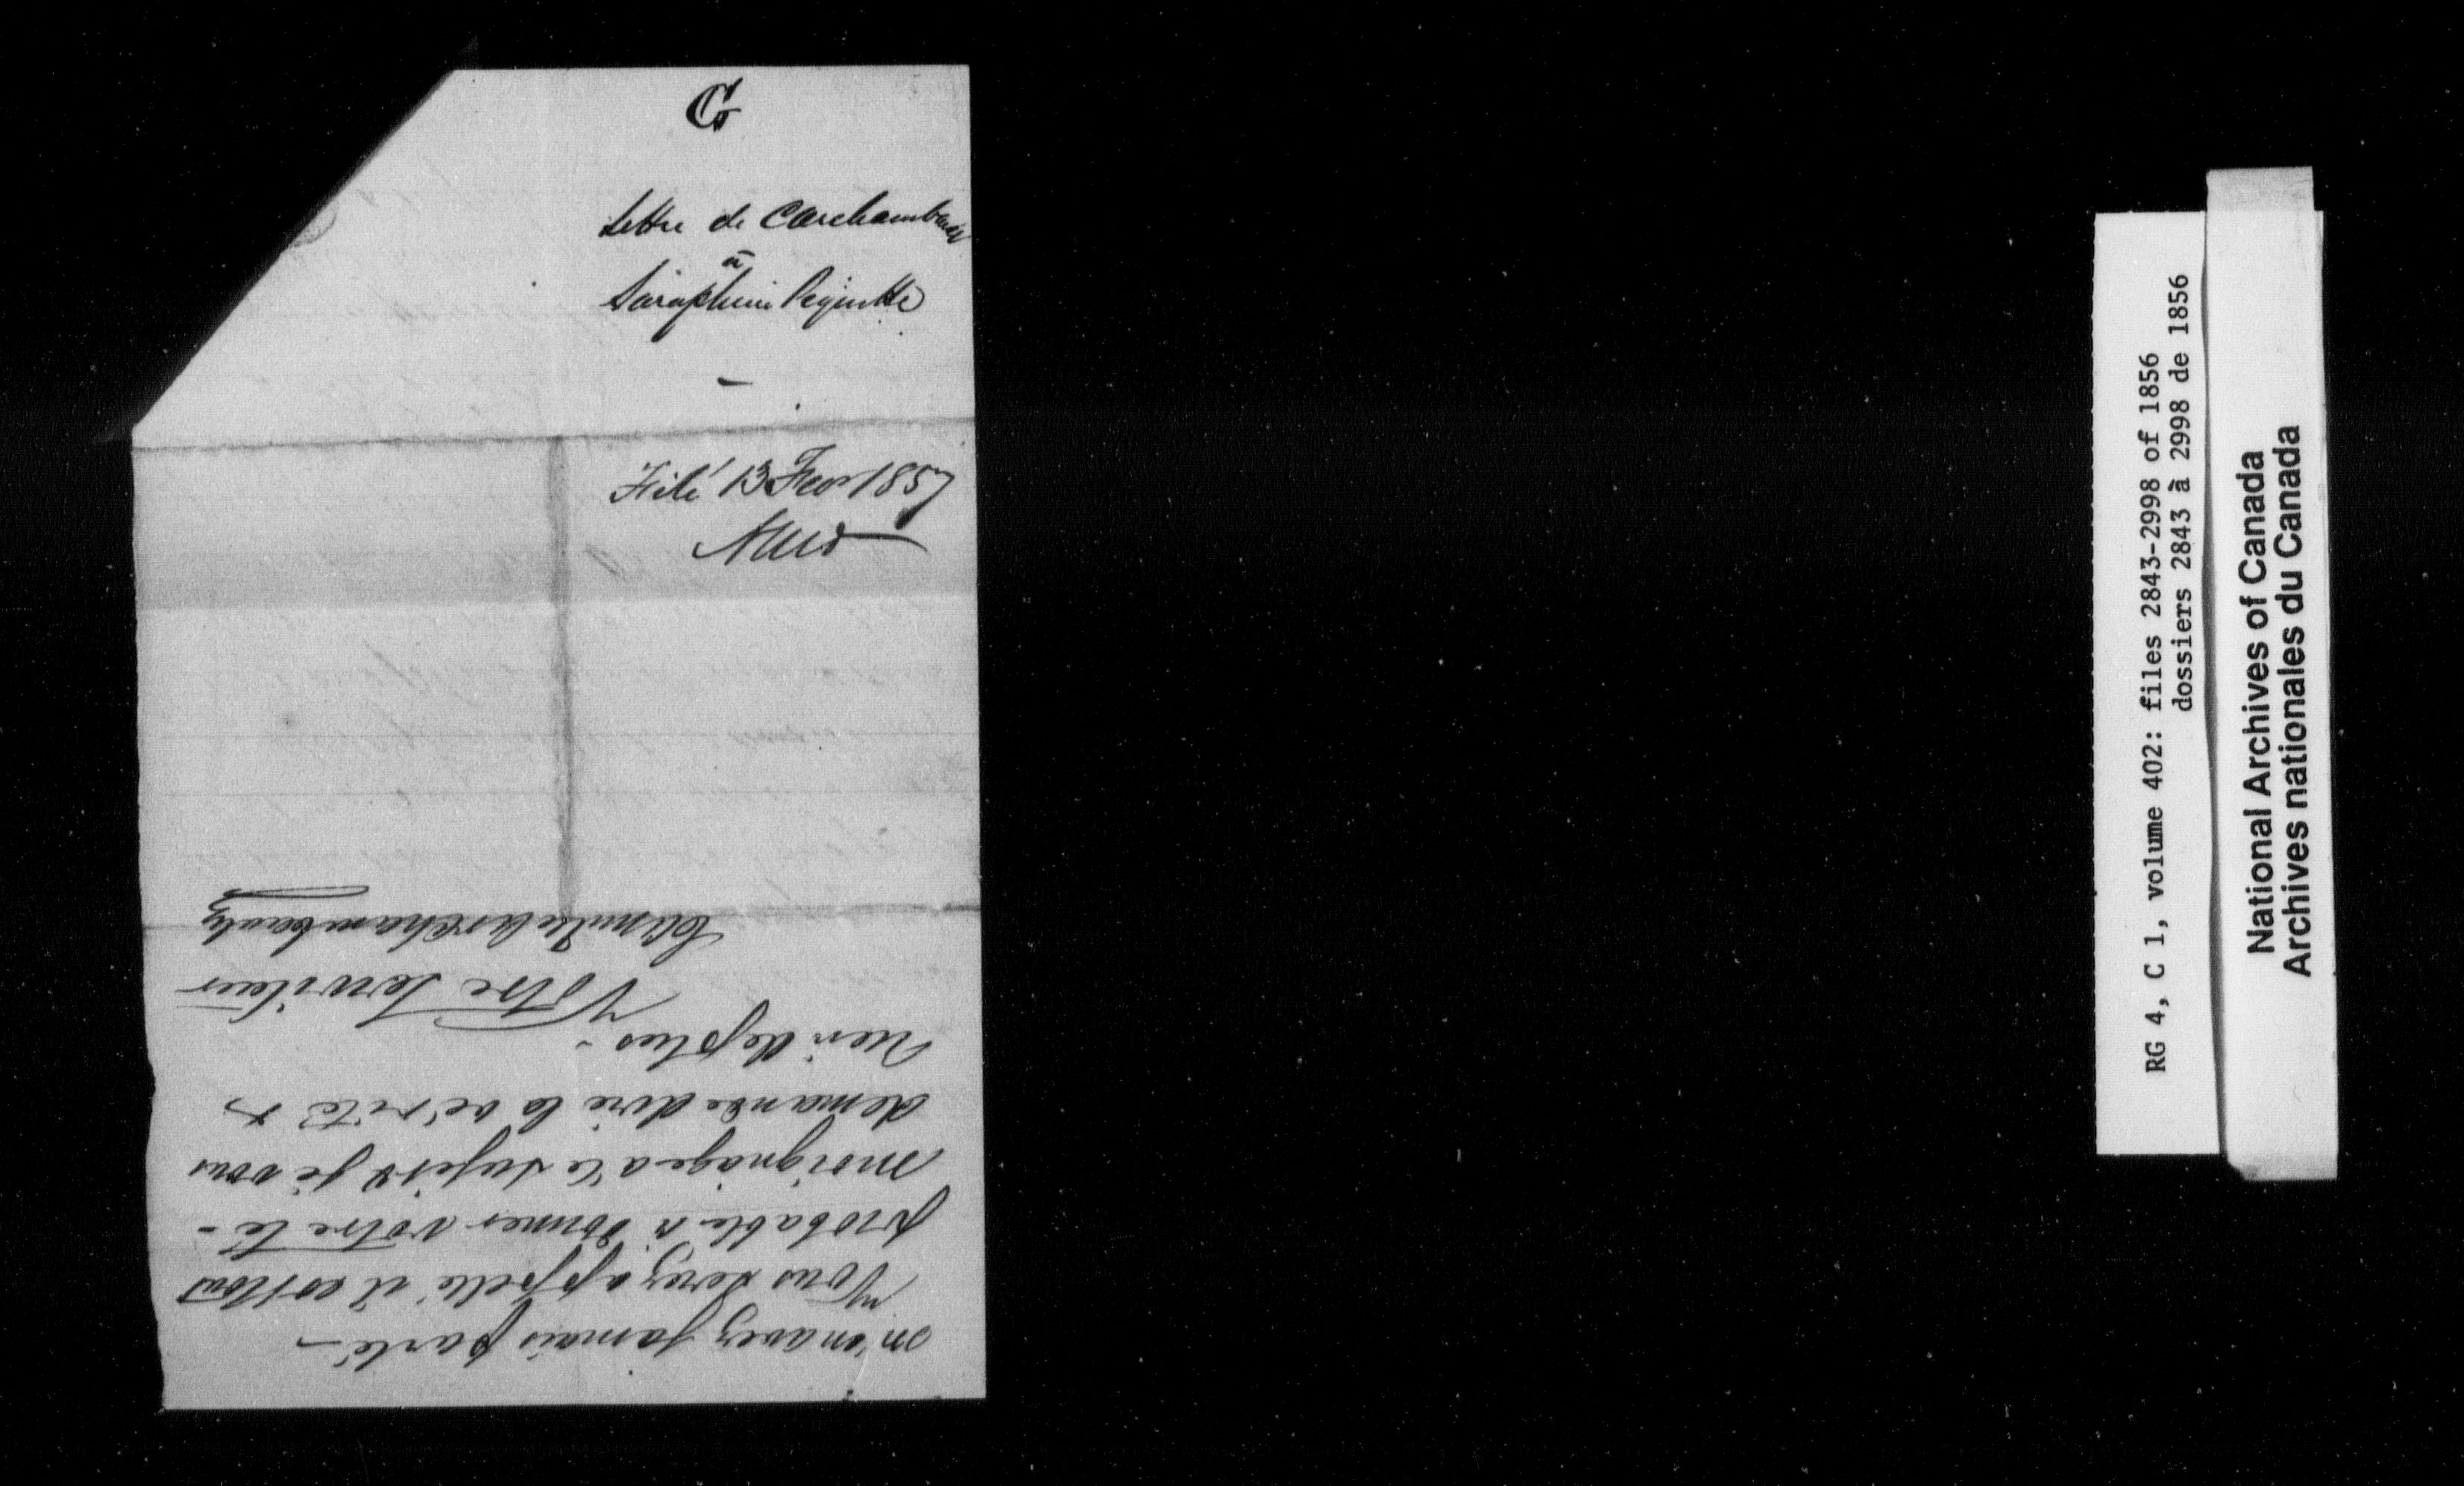 G
Lettre de C Archambault
à
Saraphin Pejutte
Filé 13 Fevr 1857
m'en avez jamais parlé -
Vous serez appellé il est tout
probable à donner votre té-
moignage a ce sujet & je vous
demande dire la vérité &
rien de plus -
Votre Serviteur
Camille Archambeault
RG 4, C 1, volume 402: files 2843-2998 of 1856
dossiers 2843 à 2998 de 1856
National Archives of Canada
Archives nationales du Canada